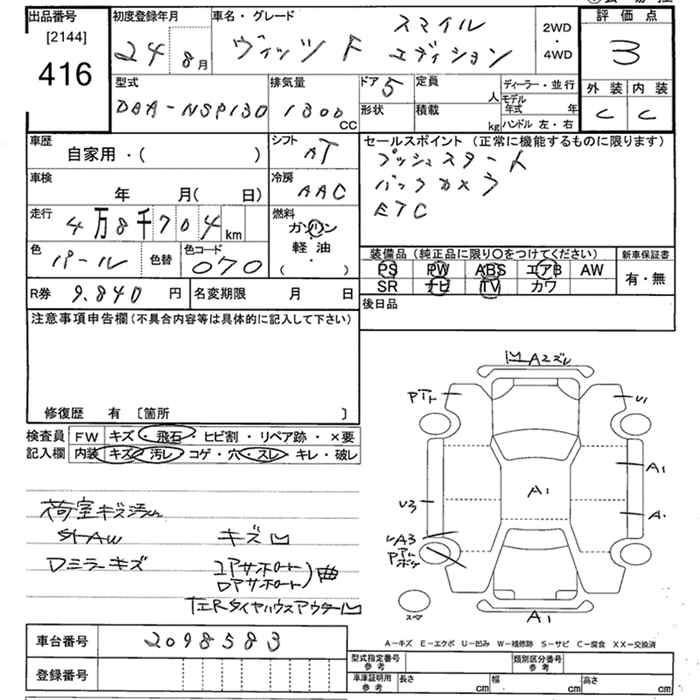 出品番号
[2144]
416
初度登録年月
24 8月
車名・グレード
ヴィッツ F スマイル
エディション
2WD
・
4WD
評価点
3
外装 内装
C C
型式
DBA-NSP130
排気量
1300
CC
ドア 5
定員
人
形状
積載
kg
ディーラー・並行
モデル
年式 年
ハンドル 左・右
車歴
自家用・( )
シフト
AT
車検
年 月( 日)
冷房
AAC
走行
4万8千704
km
燃料
ガソリン
・
軽油
・
( )
色
パール
色替
色コード
070
R券 9.840 円
名変期限 月 日
セールスポイント(正常に機能するものに限ります)
プッシュスタート
バックカメラ
ETC
装備品(純正品に限り○をつけてください)
PS PW ABS エアB AW
SR ナビ TV カワ
新車保証書
有・無
後日品
注意事項申告欄(不具合内容等は具体的に記入して下さい)
修復歴 有 [箇所 ]
検査員
記入欄
FW キズ・飛石・ヒビ割・リペア跡・×要
内装 キズ・汚レ・コゲ・穴・スレ・キレ・破レ
荷室キズ汚レ
Dミラーキズ
キズ凹
A2ズレ
U1
A1
U3
A1
スペア
A1
A-キズ E-エクボ U-凹み W-補修跡 S-サビ C-腐食 XX-交換済
車台番号 2098583
登録番号
型式指定番号
参考
類別区分番号
参考
車庫証明用
参考
長さ cm
幅 cm
高さ cm